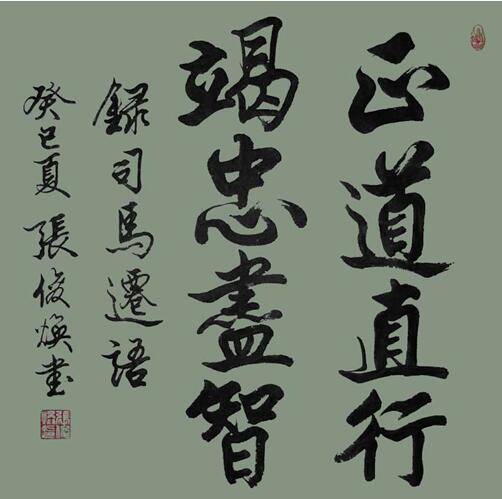 正道直行
竭忠盡智
録司馬遷語
癸巳夏 張俊煥書